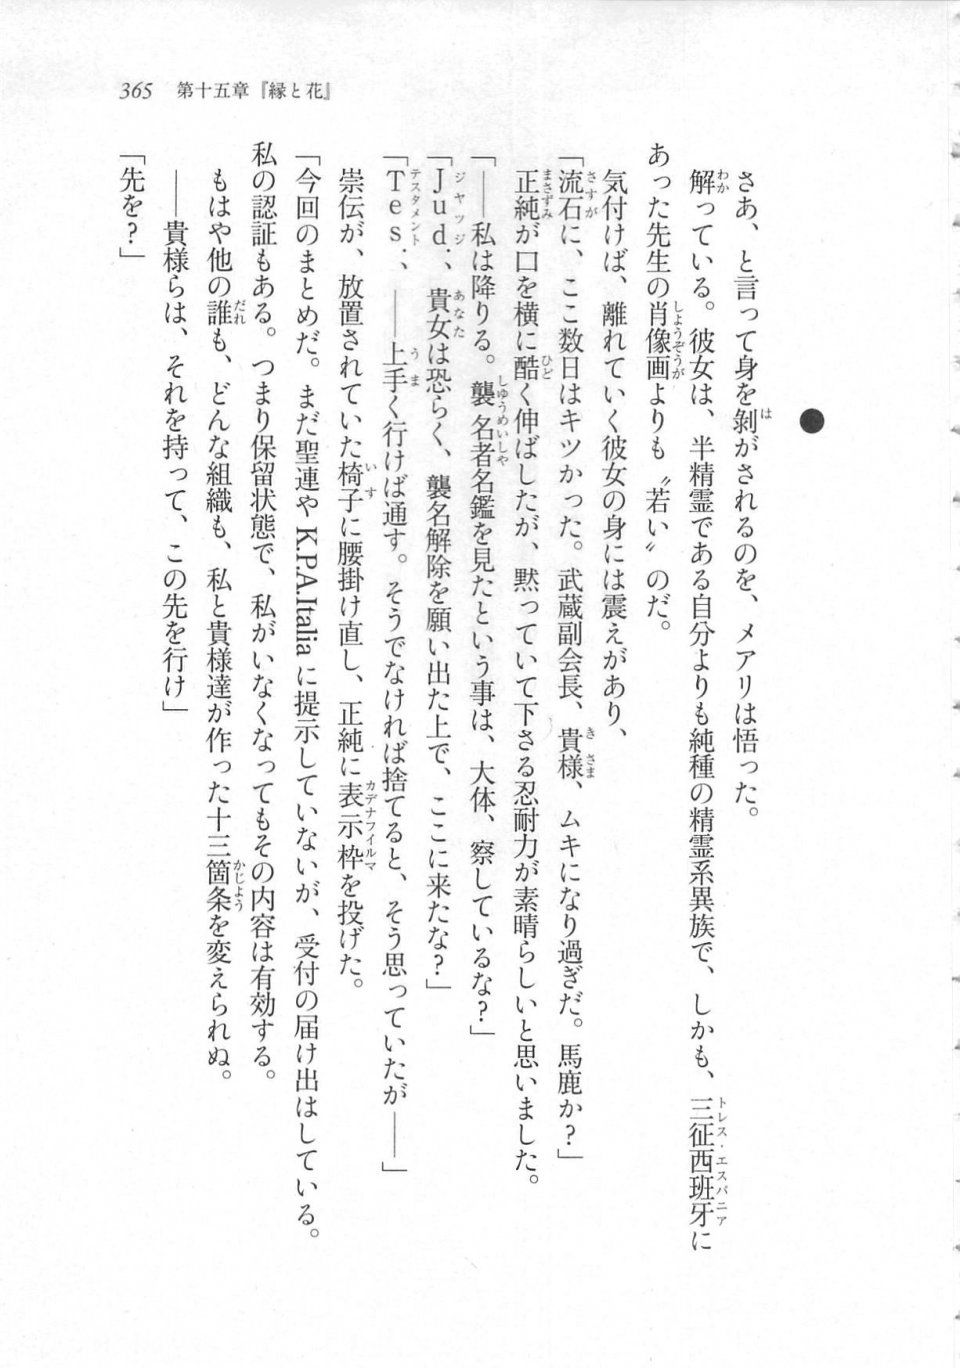 365　第十五章『縁と花』
●
さあ、と言って身を剝がされるのを、メアリは悟った。
解っている。彼女は、半精霊である自分よりも純種の精霊系異族で、しかも、三征西班牙に
あった先生の肖像画よりも〝若い〟のだ。
気付けば、離れていく彼女の身には震えがあり、
「流石に、ここ数日はキツかった。武蔵副会長、貴様、ムキになり過ぎだ。馬鹿か？」
正純が口を横に酷く伸ばしたが、黙っていて下さる忍耐力が素晴らしいと思いました。
「――私は降りる。襲名者名鑑を見たという事は、大体、察しているな？」
「Ｊｕｄ．、貴女は恐らく、襲名解除を願い出た上で、ここに来たな？」
「Ｔｅｓ．、――上手く行けば通す。そうでなければ捨てると、そう思っていたが――」
崇伝が、放置されていた椅子に腰掛け直し、正純に表示枠を投げた。
「今回のまとめだ。まだ聖連や K.P.A.Italia に提示していないが、受付の届け出はしている。
私の認証もある。つまり保留状態で、私がいなくなってもその内容は有効する。
もはや他の誰も、どんな組織も、私と貴様達が作った十三箇条を変えられぬ。
――貴様らは、それを持って、この先を行け」
「先を？」